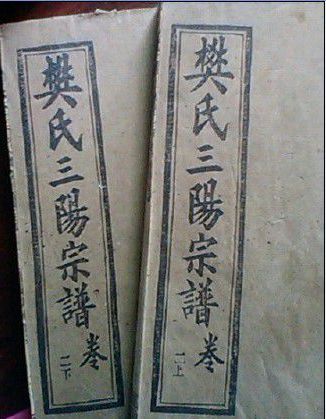 樊氏三陽宗譜卷一上
樊氏三陽宗譜卷二下